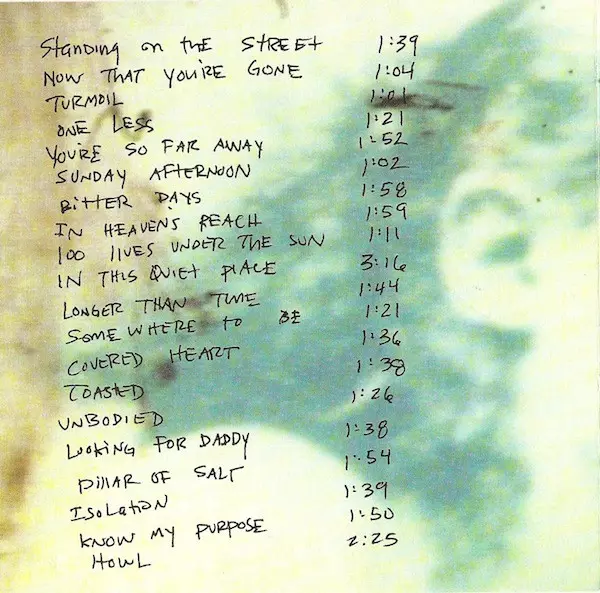 Standing on the Street 1:39
Now That You're Gone 1:04
Turmoil 1:01
One Less 1:21
You're So Far Away 1:52
Sunday Afternoon 1:02
Bitter Days 1:58
In Heavens Reach 1:59
100 Lives Under The Sun 1:11
In This Quiet Place 3:16
Longer Than Time 1:44
Somewhere to Be 1:21
Covered Heart 1:36
Toasted 1:38
Unbodied 1:26
Looking For Daddy 1:38
Pillar of Salt 1:54
Isolation 1:39
Know My Purpose 1:50
Howl 2:25